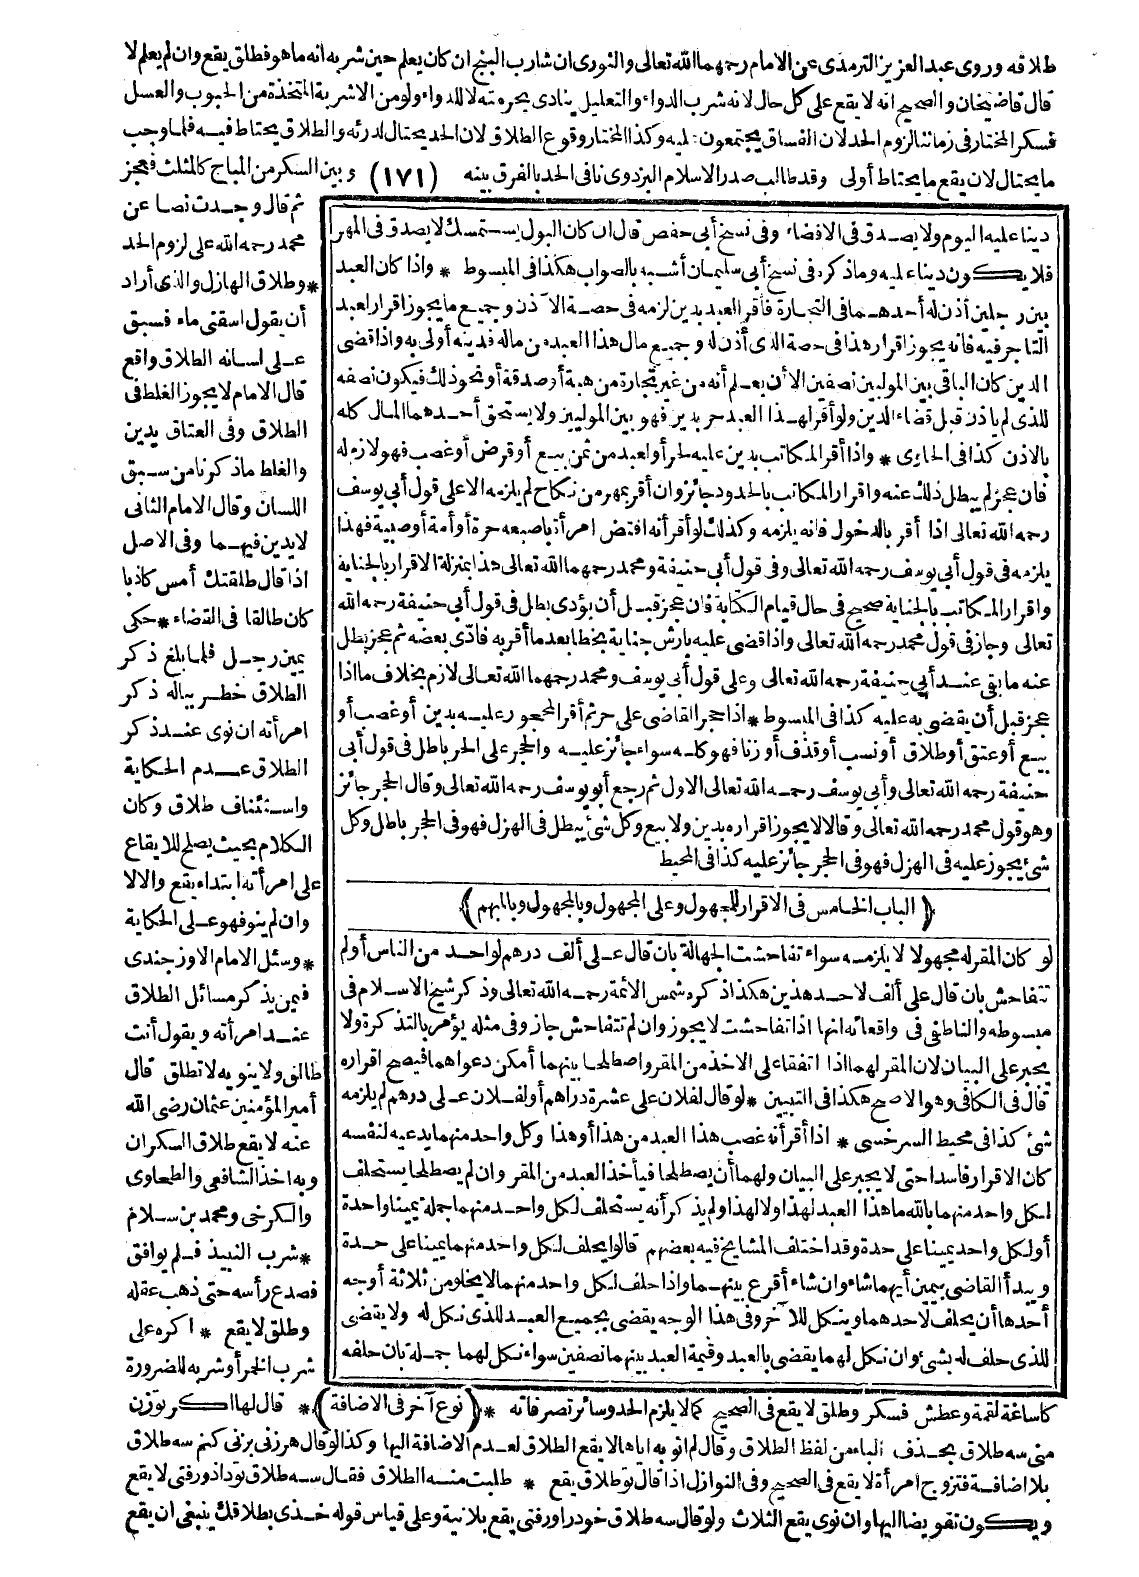 طلاقه وروى عبد العزيز الترمذى عن الامام رحمهما الله تعالى والثورى ان شارب البنج ان كان يعلم حين شربه انه ما هو فطلق يقع وان لم يعلم لا
قال قاضيخان والصحيح انه لا يقع على كل حال لانه شرب الدواء والتعليل ينادى بحرمته لا للدواء ولو من الاشربة المتخذة من الحبوب والعسل
فسكر المختار فى زماننا لزوم الحد لان الفساق يجتمعون عليه وكذا المختار وقوع الطلاق لان الحد يحتال لدرئه والطلاق يحتاط فيه فلما وجب
ما يحتال لان يقع ما يحتاط أولى وقد طالب صدر الاسلام البزدوى نافى الحد بالفرق بينه (١٧١) وبين السكر من المباح كالمثلث فعجز
ثم قال وجدت نصا عن
محمد رحمه الله على لزوم الحد
* وطلاق الهازل والذى أراد
أن يقول اسقنى ماء فسبق
على لسانه الطلاق واقع
قال الامام لا يجوز الغلط فى
الطلاق وفى العتاق يدين
والغلط ما ذكرنا من سبق
اللسان وقال الامام الثانى
لا يدين فيهما وفى الاصل
اذا قال طلقتك أمس كاذبا
كان طالقا فى القضاء * حكى
يمين رجل فلما بلغ ذكر
الطلاق خطر بباله ذكر
امرأته ان نوى عند ذكر
الطلاق عدم الحكاية
واستئناف طلاق وكان
الكلام بحيث يصلح للايقاع
على امرأته ابتداء يقع والا لا
وان لم ينو فهو على الحكاية
* وسئل الامام الاوزجندى
فيمن يذكر مسائل الطلاق
عند امرأته ويقول أنت
طالق ولا ينوبه لا تطلق قال
أمير المؤمنين عثمان رضى الله
عنه لا يقع طلاق السكران
وبه اخذ الشافعى والطحاوى
والكرخى ومحمد بن سلام
* شرب النبيذ فلم يوافق
فصدع رأسه حتى ذهب عقله
وطلق لا يقع * اكره على
شرب الخمر أو شربه للضرورة
دينا عليه اليوم ولا يصدق فى الافضاء وفى نسخ أبى حفص قال ان كان البول يستمسك لا يصدق فى المهر
فلا يكون دينا عليه وما ذكره فى نسخ أبى سليمان أشبه بالصواب هكذا فى المبسوط * واذا كان العبد
بين رجلين أذن له أحدهما فى التجارة فأقر العبد بدين لزمه فى حصة الآذن وجميع ما يجوز اقرار العبد
التاجر فيه فانه يجوز اقرار هذا فى حصة الذى أذن له وجميع مال هذا العبد من ماله فدينه أولى به واذا قضى
الدين كان الباقى بين الموليين نصفين الا أن يعلم أنه من غير تجارة من هبة أو صدقة أو نحو ذلك فيكون نصفه
للذى لم يأذن قبل قضاء الدين ولو أقر لهذا العبد حر بدين فهو بين الموليين ولا يستحق أحدهما المال كله
بالاذن كذا فى الحاوى * واذا أقر المكاتب بدين عليه لحر أو لعبد من ثمن بيع أو قرض أو غصب فهو لازم له
فان عجز لم يبطل ذلك عنه واقرار المكاتب بالحدود جائز وان أقر بمهر من نكاح لم يلزمه الا على قول أبى يوسف
رحمه الله تعالى اذا أقر بالدخول فانه يلزمه وكذلك لو أقر أنه افتض امرأة باصبعه حرة أو أمة أو صبية فهذا
يلزمه فى قول أبى يوسف رحمه الله تعالى وفى قول أبى حنيفة ومحمد رحمهما الله تعالى هذا بمنزلة الاقرار بالجناية
واقرار المكاتب بالجناية صحيح فى حال قيام الكتابة فان عجز قبل أن يؤدى بطل فى قول أبى حنيفة رحمه الله
تعالى وجاز فى قول محمد رحمه الله تعالى واذا قضى عليه بارش جناية بخطا بعد ما أقر به فادّى بعضه ثم عجز بطل
عنه ما بقى عند أبى حنيفة رحمه الله تعالى وعلى قول أبى يوسف ومحمد رحمهما الله تعالى لازم بخلاف ما اذا
عجز قبل أن يقضى به عليه كذا فى المبسوط * اذا حجر القاضى على حر ثم أقر المحجور عليه بدين أو غصب أو
بيع أو عتق أو طلاق أو نسب أو قذف أو زنا فهو كله سواء جائز عليه والحجر على الحر باطل فى قول أبى
حنيفة رحمه الله تعالى وأبى يوسف رحمه الله تعالى الاول ثم رجع أبو يوسف رحمه الله تعالى وقال الحجر جائز
وهو قول محمد رحمه الله تعالى وقالا لا يجوز اقراره بدين ولا بيع وكل شئ يبطل فى الهزل فهو فى الحجر باطل وكل
شئ يجوز عليه فى الهزل فهو فى الحجر جائز عليه كذا فى المحيط
﴿الباب الخامس فى الاقرار للمجهول وعلى المجهول وبالمجهول وبالمبهم﴾
لو كان المقر له مجهولا لا يلزمه سواء تفاحشت الجهالة بان قال على ألف درهم لواحد من الناس أو لم
تتفاحش بان قال على ألف لاحد هذين هكذا ذكره شمس الائمة رحمه الله تعالى وذكر شيخ الاسلام فى
مبسوطه والناطفى فى واقعاته انها اذا تفاحشت لا يجوز وان لم تتفاحش جاز وفى مثله يؤمر بالتذكرة ولا
يجبر على البيان لان المقر لهما اذا اتفقا على الاخذ من المقر واصطلحا بينهما أمكن دعواهما فيصح اقراره
قال فى الكافى وهو الاصح هكذا فى التبيين * لو قال لفلان على عشرة دراهم أو لفلان على درهم لم يلزمه
شئ كذا فى محيط السرخسى * اذا أقر أنه غصب هذا العبد من هذا أو هذا وكل واحد منهما يدعيه لنفسه
كان الاقرار فاسدا حتى لا يجبر على البيان ولهما أن يصطلحا فيأخذ العبد من المقر وان لم يصطلحا يستحلف
لكل واحد منهما بالله ما هذا العبد لهذا ولا لهذا ولم يذكر أنه يستحلف لكل واحد منهما جملة يمينا واحدة
أو لكل واحد يمينا على حدة وقد اختلف المشايخ فيه بعضهم قالوا يحلف لكل واحد منهما يمينا على حدة
ويبدأ القاضى بيمين أيهما شاء وان شاء أقرع بينهما واذا حلف لكل واحد منهما لا يخلو من ثلاثة أوجه
أحدها أن يحلف لاحدهما وينكل للآخر وفى هذا الوجه يقضى بجميع العبد للذى نكل له ولا يقضى
للذى حلف له بشئ وان نكل لهما يقضى بالعبد وقيمة العبد بينهما نصفين سواء نكل لهما جملة بان حلفه
كاساغة لقمة وعطش فسكر وطلق لا يقع فى الصحيح كما لا يلزم الحد وسائر تصرفاته * ﴿نوع آخر فى الاضافة﴾ * قال لها اكر توزن
منى سه طلاق بحذف الباء من لفظ الطلاق وقال لم انو به اياها لا يقع الطلاق لعدم الاضافة اليها وكذا لو قال هر زنى بزنى كنم سه طلاق
بلا اضافة فتزوج امرأة لا يقع فى الصحيح وفى النوازل اذا قال تو طلاق يقع * طلبت منه الطلاق فقال سه طلاق تو داذو رفتى لا يقع
ويكون تفويضا اليها وان نوى يقع الثلاث ولو قال سه طلاق خود را ورفتى يقع بلا نية وعلى قياس قوله خذى بطلاقك ينبغى ان يقع